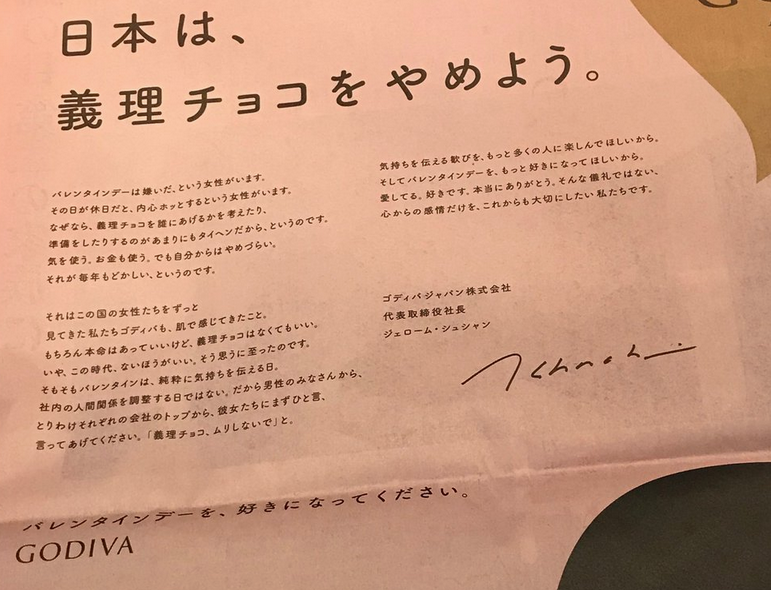 日本は、
義理チョコをやめよう。
バレンタインデーは嫌いだ、という女性がいます。
その日が休日だと、内心ホッとするという女性がいます。
なぜなら、義理チョコを誰にあげるかを考えたり、
準備をしたりするのがあまりにもタイヘンだから、というのです。
気を使う。お金も使う。でも自分からはやめづらい。
それが毎年もどかしい、というのです。
それはこの国の女性たちをずっと
見てきた私たちゴディバも、肌で感じてきたこと。
もちろん本命はあっていいけど、義理チョコはなくてもいい。
いや、この時代、ないほうがいい。そう思うに至ったのです。
そもそもバレンタインは、純粋に気持ちを伝える日。
社内の人間関係を調整する日ではない。だから男性のみなさんから、
とりわけそれぞれの会社のトップから、彼女たちにまずひと言、
言ってあげてください。「義理チョコ、ムリしないで」と。
気持ちを伝える歓びを、もっと多くの人に楽しんでほしいから。
そしてバレンタインデーを、もっと好きになってほしいから。
愛してる。好きです。本当にありがとう。そんな儀礼ではない、
心からの感情だけを、これからも大切にしたい私たちです。
ゴディバ ジャパン株式会社
代表取締役社長
ジェローム・シュシャン
バレンタインデーを、好きになってください。
GODIVA